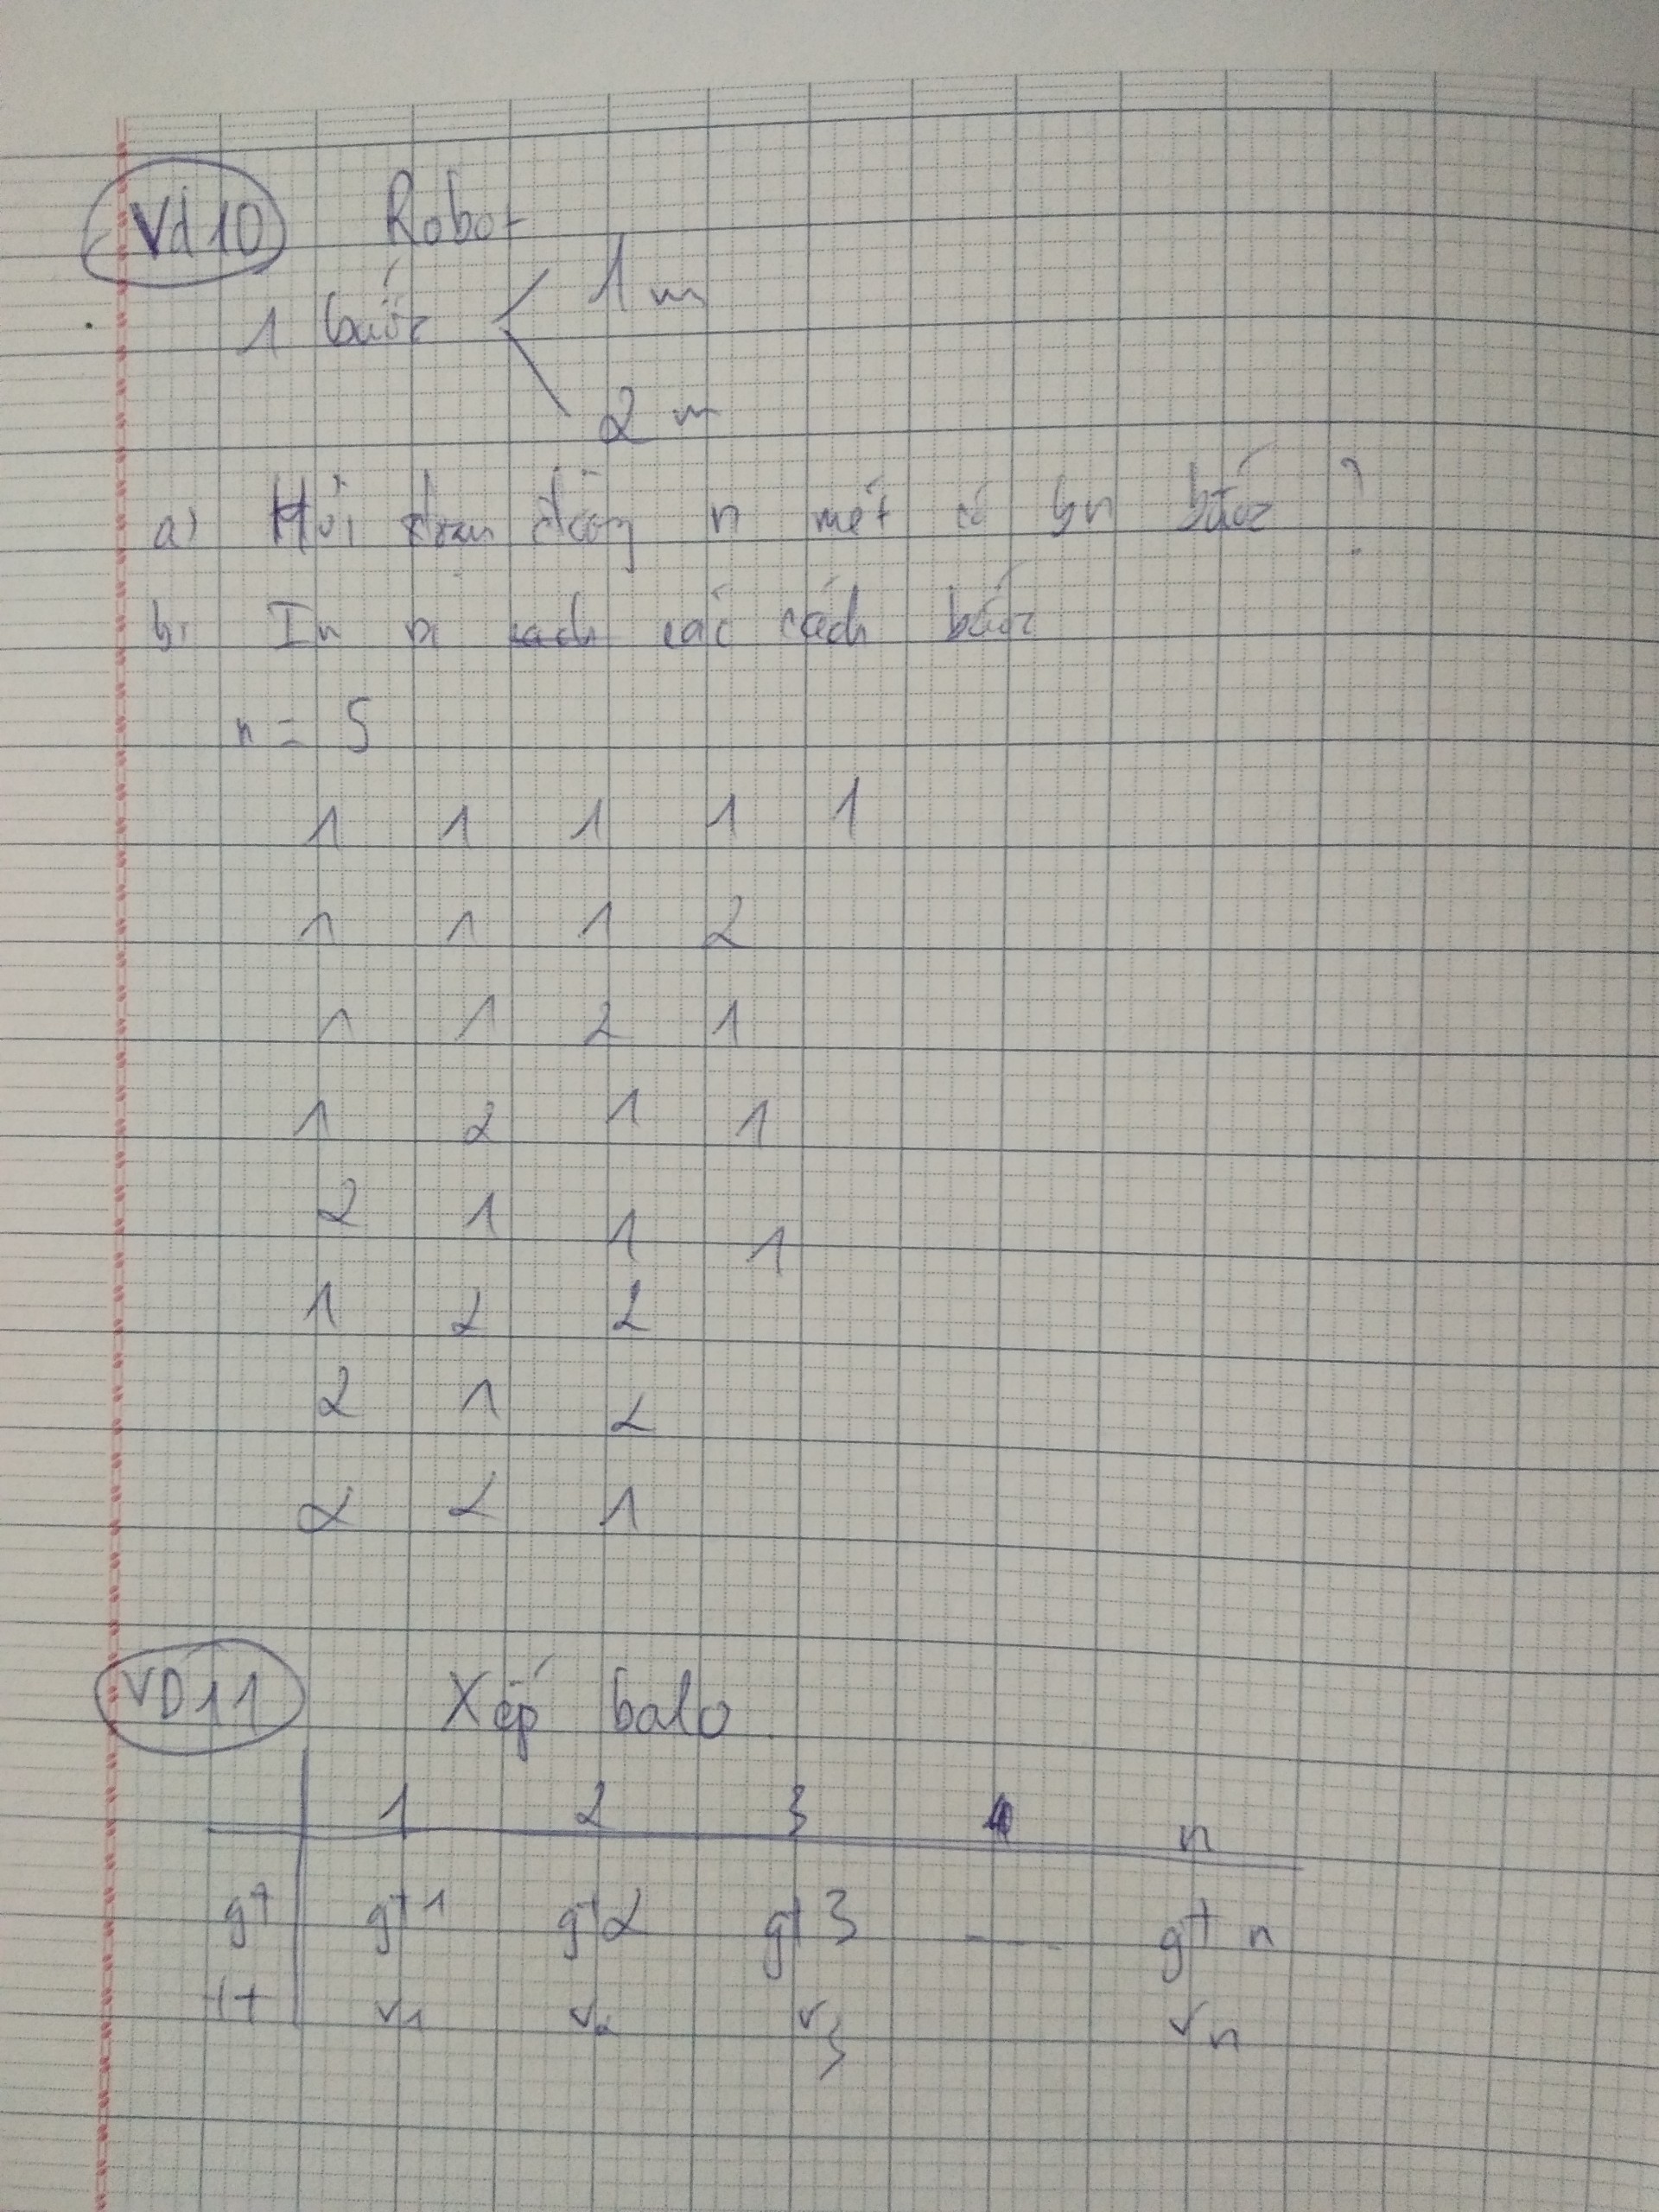 Vd10 Robot
1 bước
1 m
2 m
a) Hỏi đoạn đường n mét có bn bước ?
b) In ra các cách bước
n = 5
1 1 1 1 1
1 1 1 2
1 1 2 1
1 2 1 1
2 1 1 1
1 2 2
2 1 2
2 2 1
VD11 Xếp balo
1 2 3 n
gt gt1 gt2 gt3 ---- gt n
tt v1 v2 v3 vn